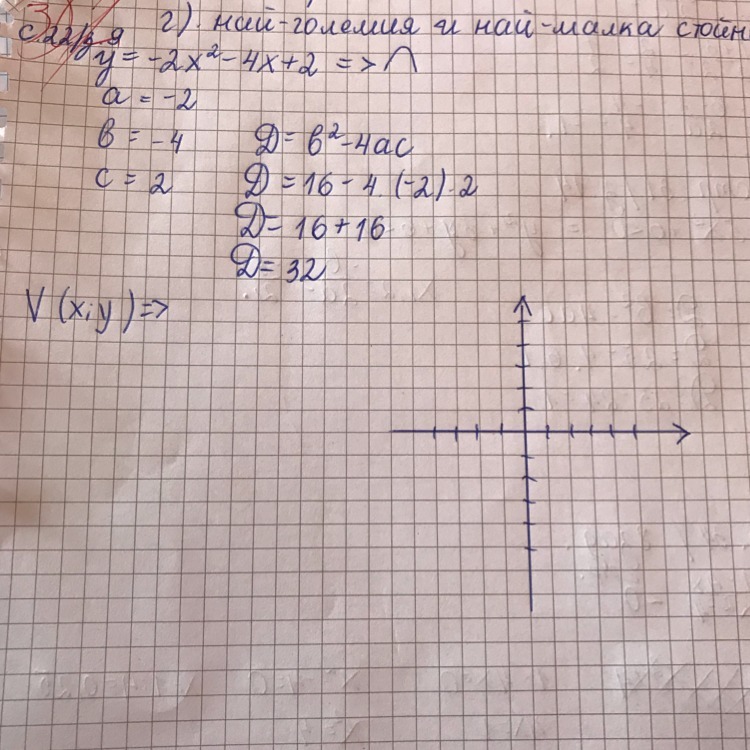 г). най-големия и най-малка стойн
y = -2x² - 4x + 2 => ∩
a = -2
b = -4
c = 2
D = b² - 4ac
D = 16 - 4. (-2) . 2
D = 16 + 16
D = 32
V (x; y) =>